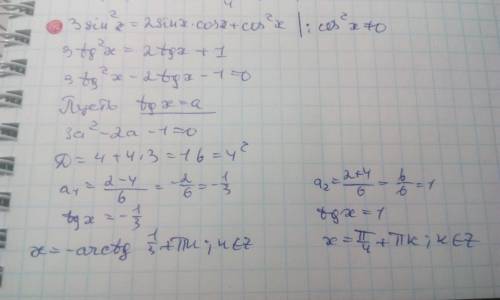 3sin²x = 2sinx·cosx + cos²x | : cos²x ≠ 0
3tg²x = 2tgx + 1
3tg²x - 2tgx - 1 = 0
Пусть tgx = a
3a² - 2a - 1 = 0
D = 4 + 4·3 = 16 = 4²
a₁ = (2-4)/6 = -2/6 = -1/3
tgx = -1/3
x = -arctg 1/3 + πk; k ∈ Z
a₂ = (2+4)/6 = 6/6 = 1
tgx = 1
x = π/4 + πk; k ∈ Z